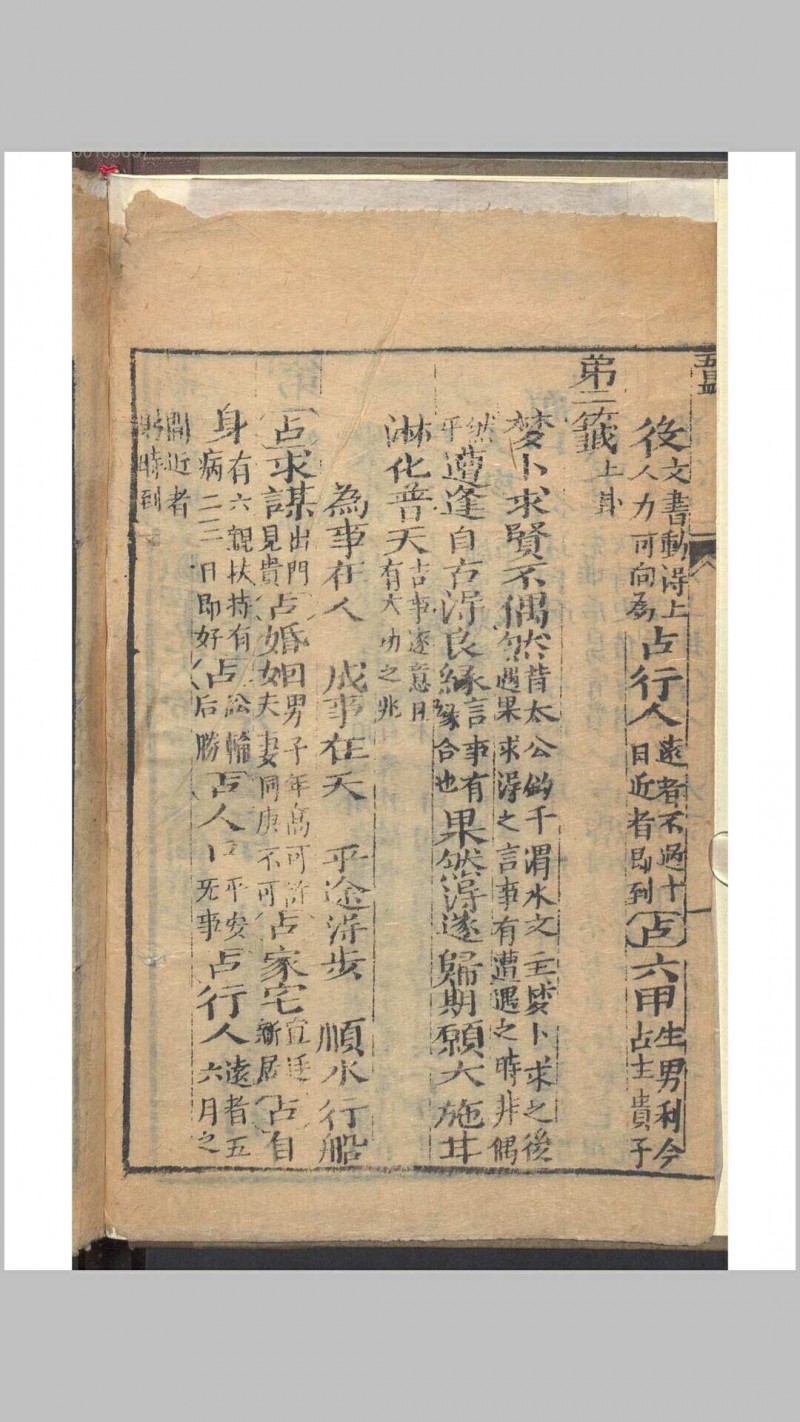 後文書動得上人力可向為占行人遠者不過十日近者即到占六甲生男利今占主貴子
第二籤上卦
夢卜求賢不偶然昔太公釣于渭水文王夢卜求之後遇果求得之言事有遭遇之時非偶
然平遭逢自古得良緣言事有緣合也果然得遂歸期願大施甘
淋化普天吉事遂意月有大功之兆
為事在人 成事在天 平途得步 順水行船
占求謀出門見貴占婚姻男子年高可許夫妻同庚不可占家宅宜迁新居占自
身有六親扶持有病二三日即好占訟輪后勝占人口平安死事占行人遠者五六月之
間近者時到